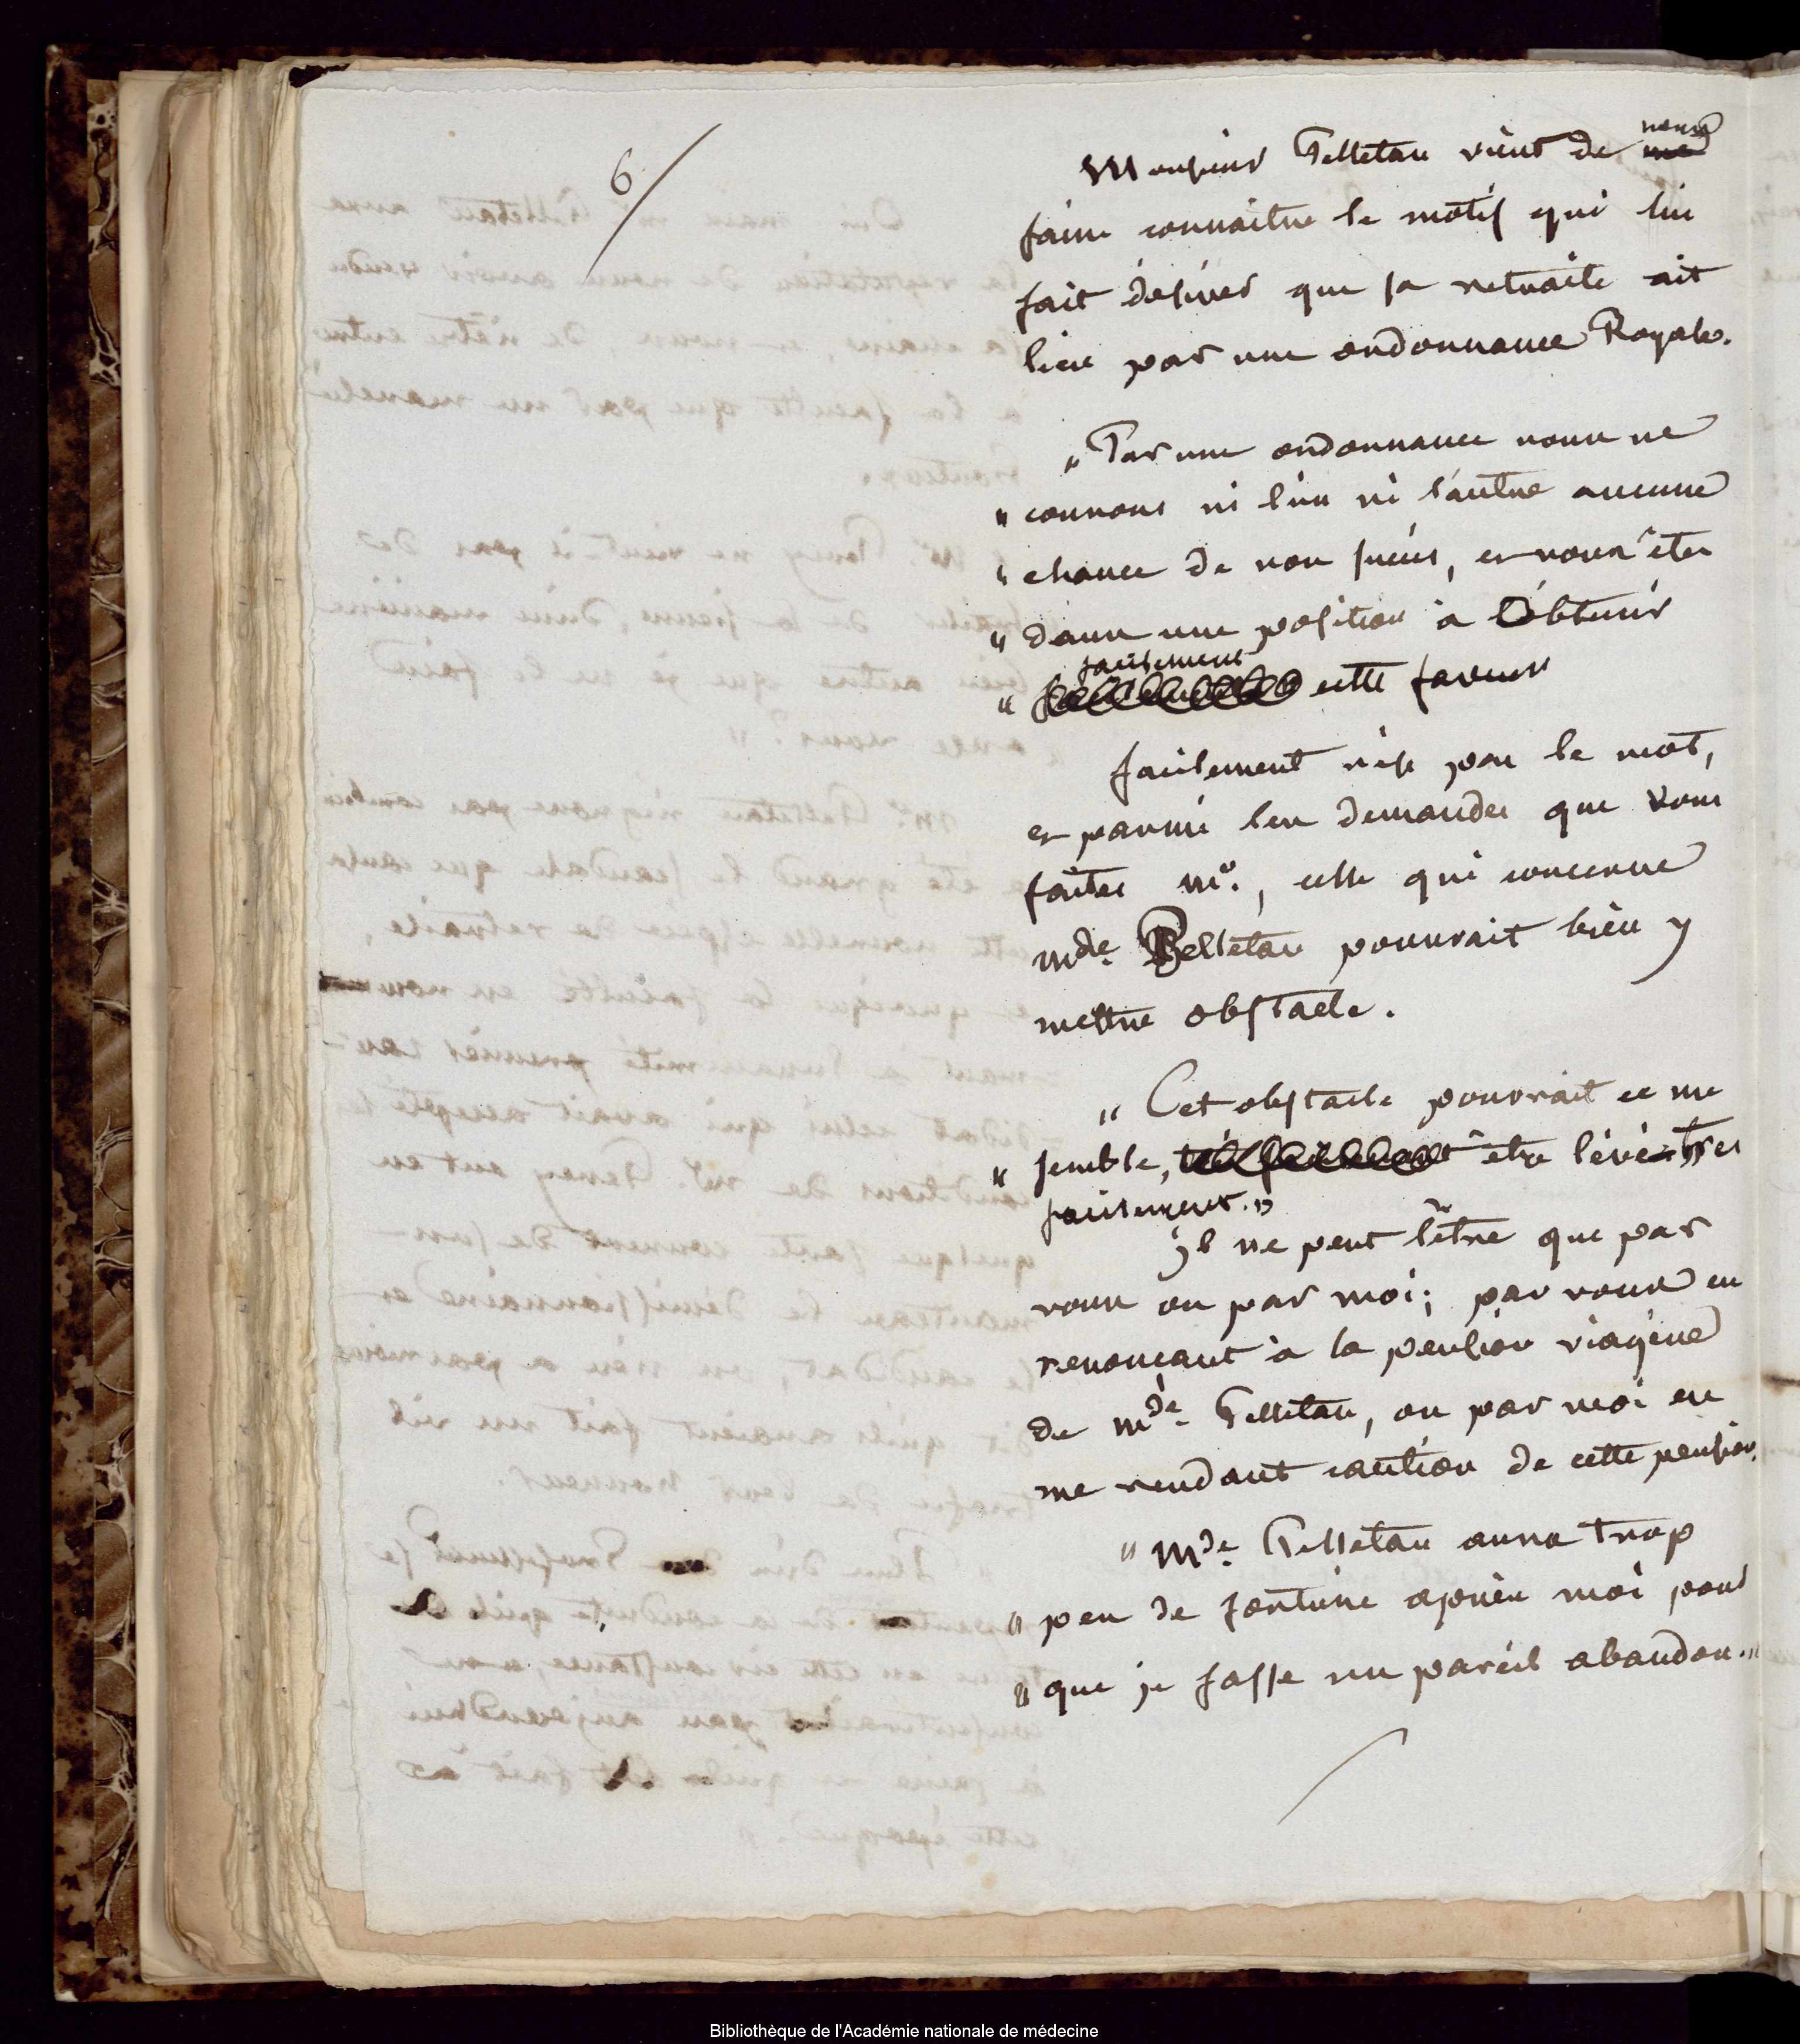 6/
Monsieur Pelletan vient de nous
faire connaitre le motif qui lui
fait désirer que sa retraite ait
lieu par une ordonnance Royale.
"Par une ordonnance nous ne
"courrons ni l'un ni l'autre aucune
"chance de non succès, et vous êtes
"dans une position à l'obtenir
facilement
" cette faveur"
facilement n'est pas le mot,
et parmi les demandes que vous
faites mr., celle qui concerne
mde. Pelletan pourrait bien y
mettre obstacle.
"Cet obstacle pourrait ce me
"semble, être levé très
facilement."
il ne peut l'être que par
vous ou par moi; par vous en
renonçant à la pension viagère
de mde. Pelletan, ou par moi en
me rendant caution de cette pension.
"Mde. Pelletan aura trop
"peu de fortune après moi pour
"que je fasse un pareil abandon."
Bibliothèque de l'Académie nationale de médecine